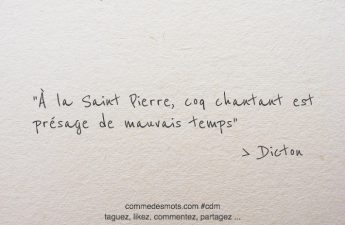 "À la Saint Pierre, coq chantant est
présage de mauvais temps"
> Dicton
commedesmots.com #cdm
taguez, likez, commentez, partagez ...